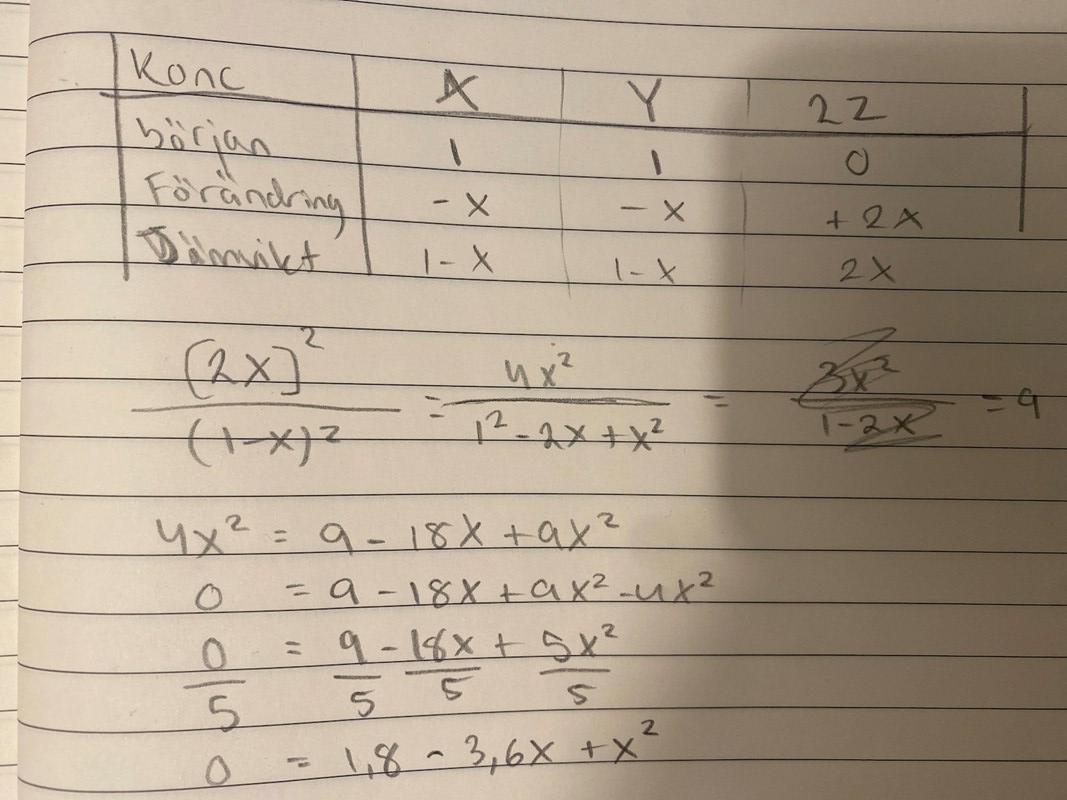 Konc X Y 2Z
början 1 1 0
Förändring -x -x +2x
Jämvikt 1-x 1-x 2x
[2x]²/(1-x)² = 4x²/(1²-2x+x²) = 3x²/(1-2x) = 9
4x² = 9 - 18x + 9x²
0 = 9 - 18x + 9x² - 4x²
0/5 = 9/5 - 18x/5 + 5x²/5
0 = 1,8 - 3,6x + x²